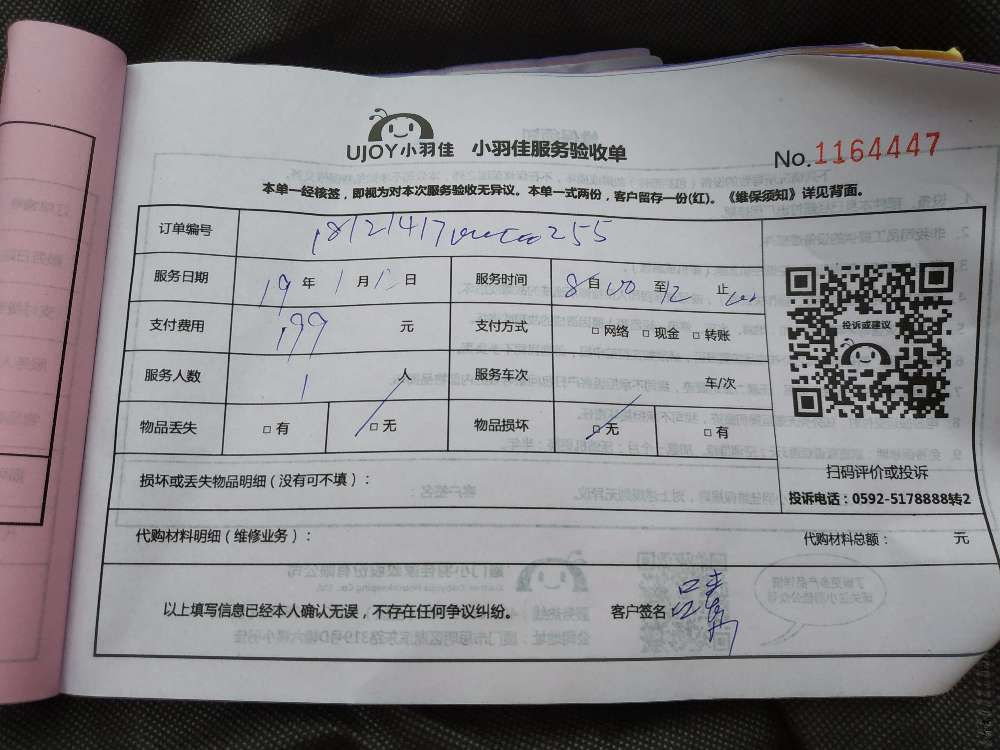 UJOY小羽佳 小羽佳服务验收单
No.1164447
本单一经核签，即视为对本次服务验收无异议。本单一式两份，客户留存一份(红)。《维保须知》详见背面。
订单编号
服务日期 19 年 1 月 日 服务时间 8 自 00 至 12 止
支付费用 199 元 支付方式 □ 网络 □ 现金 □ 转账
服务人数 1 人 服务车次 车/次
物品丢失 □ 有 □ 无 物品损坏 □ 无 □ 有
投诉或建议
扫码评价或投诉
投诉电话：0592-5178888转2
损坏或丢失物品明细（没有可不填）：
代购材料明细（维修业务）： 代购材料总额： 元
以上填写信息已经本人确认无误，不存在任何争议纠纷。 客户签名